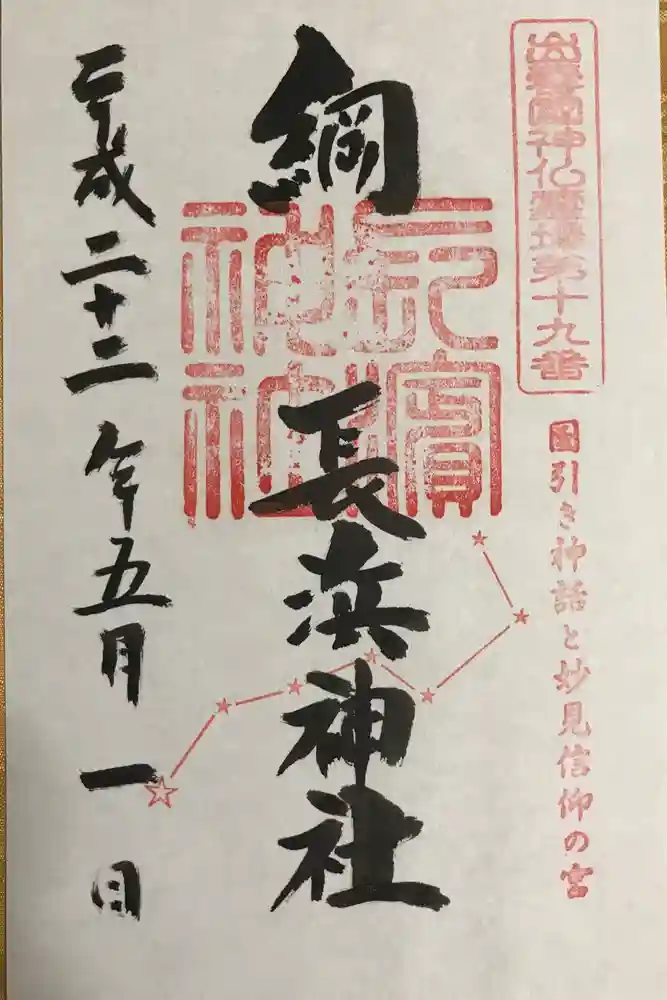 出雲國神仏霊場第十九番
国引き神話と妙見信仰の宮
綱
長浜神社
長濱
神社
平成二十二年五月一日